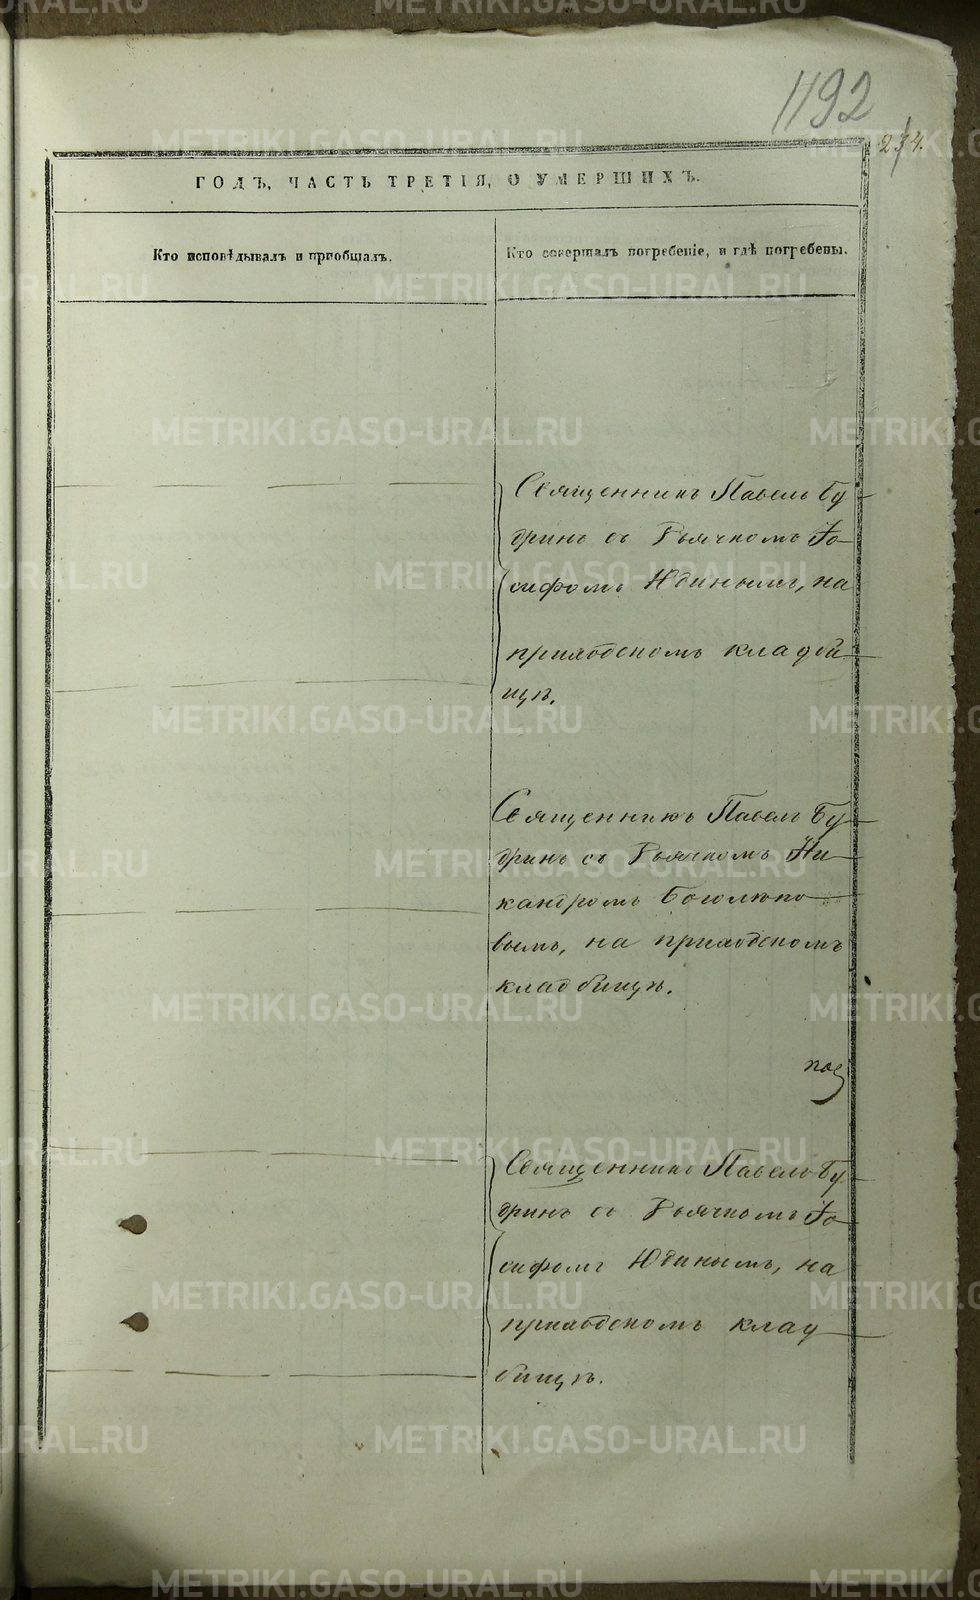 1192
234.
ГОДЪ, ЧАСТЬ ТРЕТІЯ, О УМЕРШИХЪ.
Кто исповѣдывалъ и пріобщалъ.
Кто совершалъ погребеніе, и гдѣ погребены.
Священникъ Павелъ Бу
дринъ съ Дьячкомъ Іо
сифомъ Юдинымъ, на
приходскомъ кладби
щѣ.
Священникъ Павелъ Бу
дринъ съ Дьячкомъ Ни
кандромъ Боголюбо
вымъ, на приходскомъ
кладбищѣ.
Священникъ Павелъ Бу
дринъ съ Дьячкомъ Іо
сифомъ Юдинымъ, на
приходскомъ клад
бищѣ.
METRIKI.GASO-URAL.RU